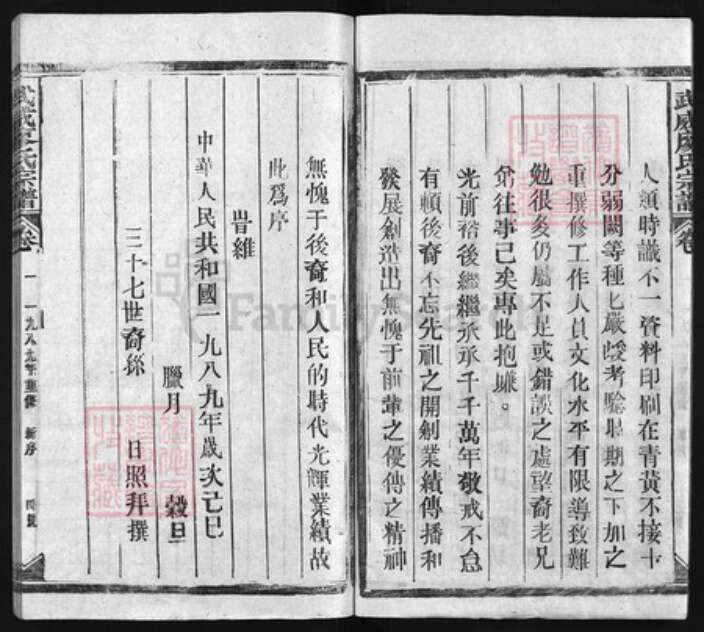 武威廖氏宗譜
卷
人類時議不一資料印刷在青黃不接十
分弱闕等種七嚴峻考驗星期之下加之
重撰修工作人員文化水平有限導致難
勉很多仍屬不足或錯誤之處望裔老兄
弟往事已矣專此抱歉。
光前裕後繼繼承承千千萬年敬戒不怠
有賴後裔不忘先祖之開創業績傳播和
發展創造出無愧于前輩之優傳之精神
無愧于後裔和人民的時代光輝業績故
此為序
旹維
中華人民共和國一九八九年歲次己巳
臘月 穀旦
三十七世裔孫 日照拜撰
武威廖氏宗譜
卷
一 一九八九年重修 新序
FamilySearch